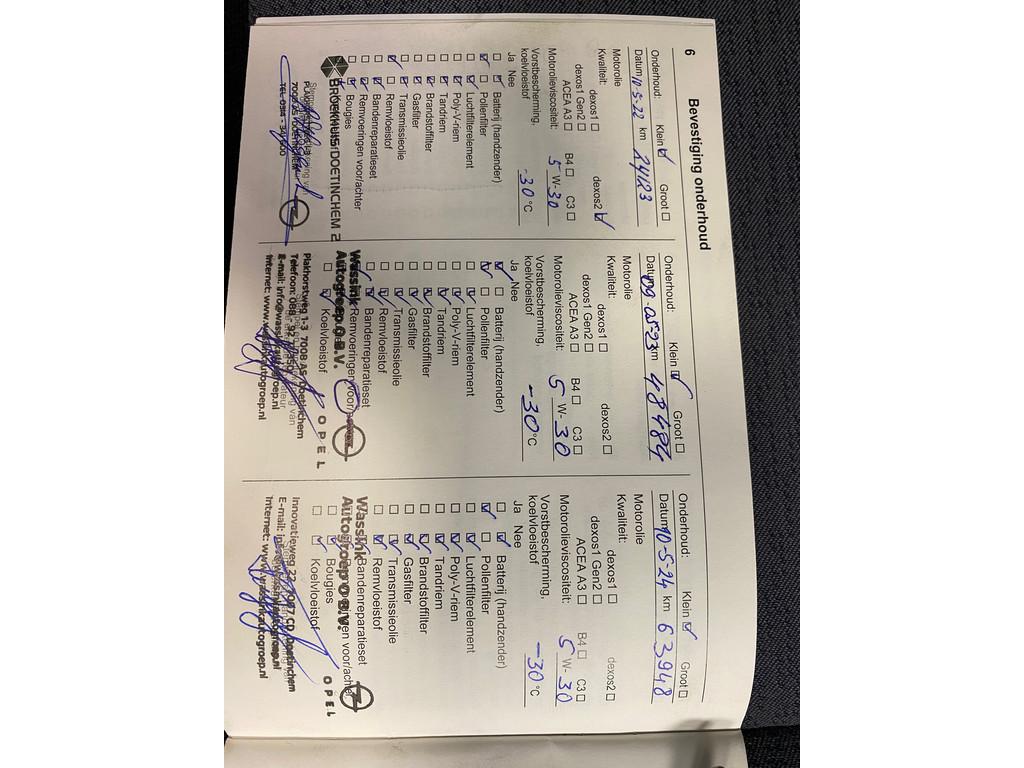 6
Bevestiging onderhoud
Onderhoud: Klein Groot
Datum 10-5-22 km 24123
Motorolie
Kwaliteit: dexos1 dexos2
dexos1 Gen2
ACEA A3 B4 C3
Motorolieviscositeit: 5 W- 30
Vorstbescherming,
koelvloeistof -30 °C
Ja Nee
Batterij (handzender)
Pollenfilter
Luchtfilterelement
Poly-V-riem
Tandriem
Brandstoffilter
Gasfilter
Transmissieolie
Remvloeistof
Bandenreparatieset
Remvoeringen voor/achter
Bougies
BROEKHUIS DOETINCHEM 2
TEL. 0314 -
Onderhoud: Klein Groot
Datum 09-05-23 km 48484
Motorolie
Kwaliteit: dexos1 dexos2
dexos1 Gen2
ACEA A3 B4 C3
Motorolieviscositeit: 5 W- 30
Vorstbescherming,
koelvloeistof -30 °C
Ja Nee
Batterij (handzender)
Pollenfilter
Luchtfilterelement
Poly-V-riem
Tandriem
Brandstoffilter
Gasfilter
Transmissieolie
Remvloeistof
Bandenreparatieset
Remvoeringen voor/achter
Koelvloeistof
Wassink
Autogroep O B.V.
OPEL
Plakhorstweg 1-3 7008 AS Doetinchem
Telefoon: 088
E-mail: info@wassinkautogroep.nl
Internet: www.wassinkautogroep.nl
Onderhoud: Klein Groot
Datum 10-5-24 km 63948
Motorolie
Kwaliteit: dexos1 dexos2
dexos1 Gen2
ACEA A3 B4 C3
Motorolieviscositeit: 5 W- 30
Vorstbescherming,
koelvloeistof -30 °C
Ja Nee
Batterij (handzender)
Pollenfilter
Luchtfilterelement
Poly-V-riem
Tandriem
Brandstoffilter
Gasfilter
Transmissieolie
Remvloeistof
Bandenreparatieset
Remvoeringen voor/achter
Bougies
Koelvloeistof
Wassink
Autogroep O B.V.
OPEL
Innovatieweg 22 7007 CD Doetinchem
E-mail: info@wassinkautogroep.nl
Internet: www.wassinkautogroep.nl